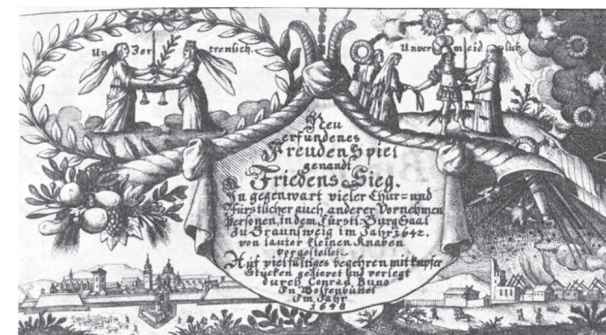 Un Zer trenlich.
Unvermeidlich.
Neu
erfundenes
Freuden Spiel
genandt
Friedens Sieg.
In gegenwart vieler Chur= und
Fürstlicher auch anderer Vornehmen
Personen, in dem Fürstl: Burg Saal
zu Braunsweig im Jahr 1642.
von lauter kleinen Knaben
vorgestellet.
Auf vielfaltiges begehren mit kupfer
Stucken gezieret und verlegt
durch Conrad Buno
In Wolfenbüttel
Im Jahr
1648